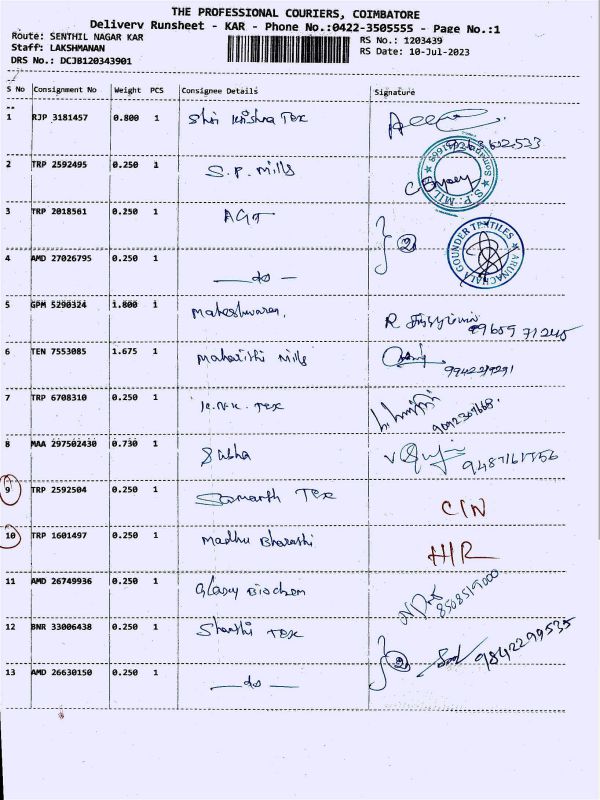 THE PROFESSIONAL COURIERS, COIMBATORE
Delivery Runsheet - KAR - Phone No.:0422-3505555 - Page No.:1
Route: SENTHIL NAGAR KAR RS No.: 1203439
Staff: LAKSHMANAN RS Date: 10-Jul-2023
DRS No.: DCJB120343901
S No Consignment No Weight PCS Consignee Details Signature
1 RJP 3181457 0.800 1 Shri Krishna Tex
2 TRP 2592495 0.250 1 S.P. Mills
S.P. MIL
3 TRP 2018561 0.250 1 AGT
2
ARUNACHALA GOUNDER TEXTILES
4 AMD 27026795 0.250 1 — do —
5 GPM 5290324 1.800 1 Maheshwaran. R
6 TEN 7553085 1.675 1 Maharishi Mills
7 TRP 6708310 0.250 1 K.N.K. Tex
8 MAA 297502430 0.730 1 Sabha
9 TRP 2592504 0.250 1 Samarth Tex CIN
10 TRP 1601497 0.250 1 Madhu Bharathi H/R
11 AMD 26749936 0.250 1 Glowy Biochem 8508519000
12 BNR 33006438 0.250 1 Shanthi Tex
2 9842299535
13 AMD 26630150 0.250 1 — do —